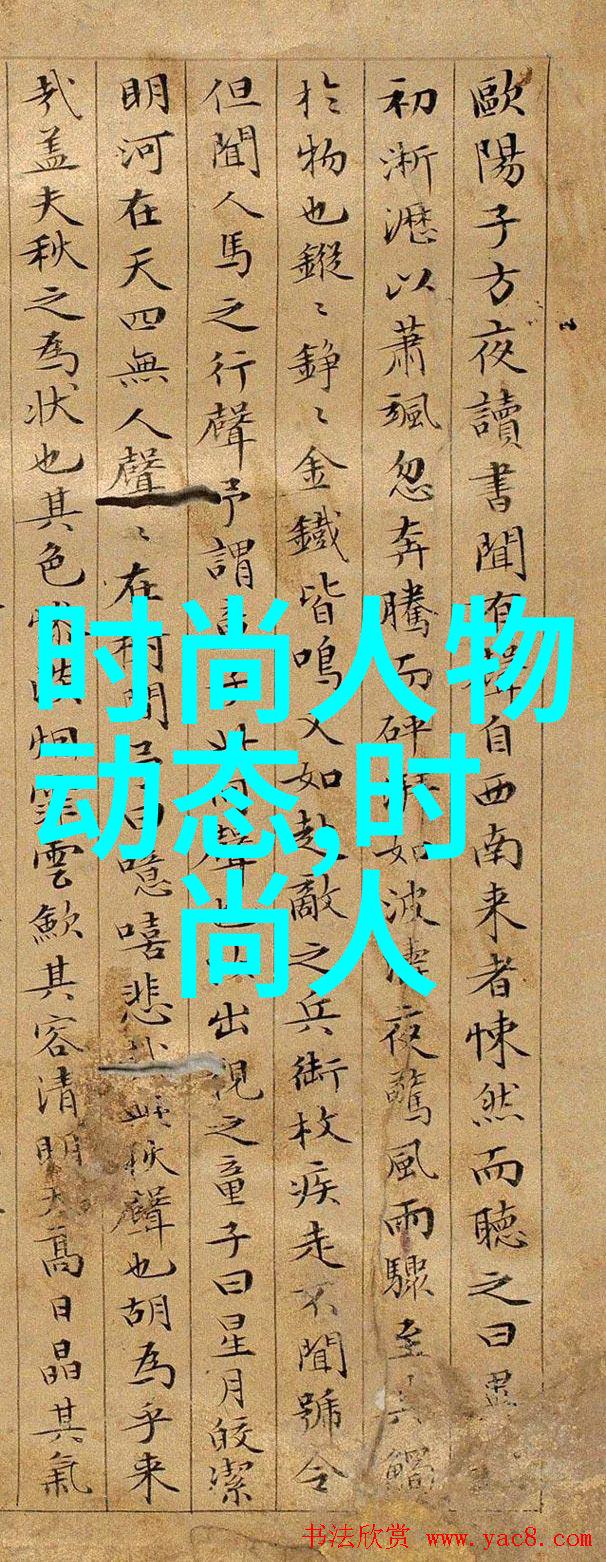 歐陽子方夜讀書聞有聲自西南来者悚然而聽之曰異
初淅瀝以蕭颯忽奔騰而砰湃如波濤夜驚風雨驟至其觸
於物也鏦〻錚〻金鐵皆鳴又如赴敵之兵銜枚疾走不聞號令
但聞人馬之行聲予謂童子此何聲也汝出視之童子曰星月皎潔
明河在天四無人聲〻在樹間予曰噫嘻悲哉此秋聲也胡為乎来
哉盖夫秋之為狀也其色慘淡烟霏雲歛其容清明天高日晶其氣
时尚人物
动态,时
尚人
书法欣赏 www.yac8.com